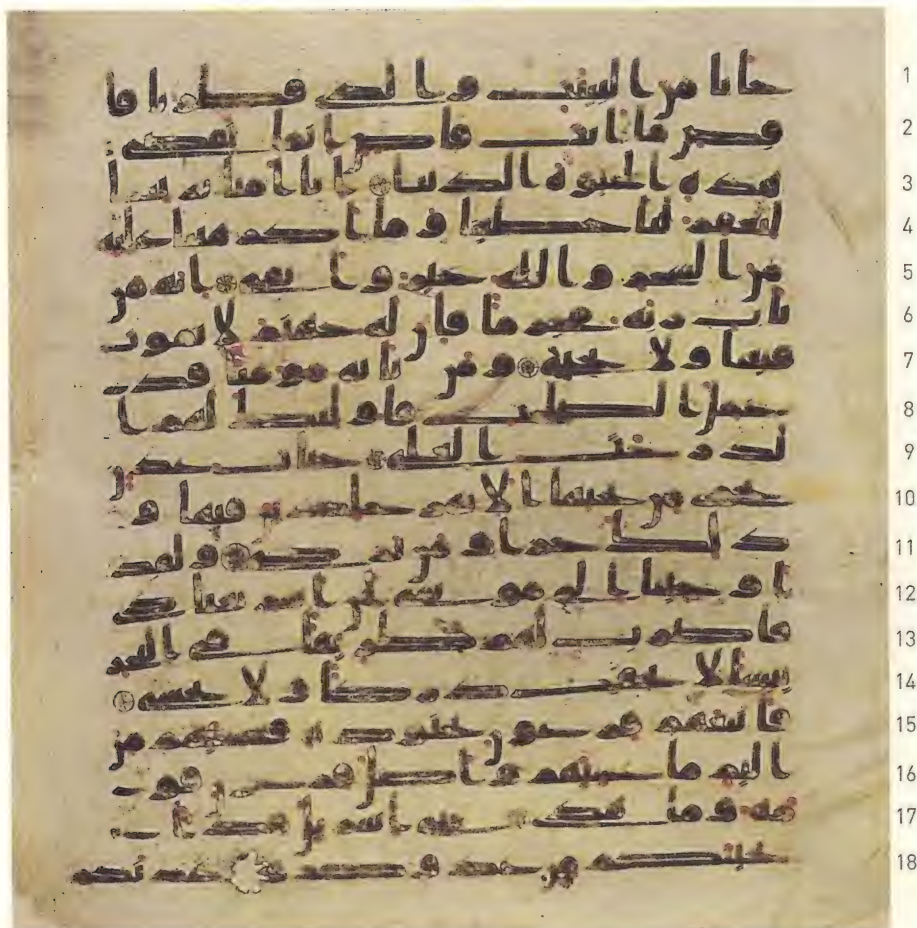 جانا من البينت والذى فطرنا فا 1
قض ما انت قاض انما تقضى 2
هذه الحيوة الدنيا انا امنا بربنا 3
ليغفر لنا خطينا وما اكرهتنا عليه 4
من السحر والله خير وابقى انه من 5
يات ربه مجرما فان له جهنم لا يموت 6
فيها ولا يحيى ومن ياته مومنا قد 7
عمل الصلحت فاوليك لهم ا 8
لدرجت العلى جنت عدن 9
تجرى من تحتها الانهر خلدين فيها و 10
ذلك جزا من تزكى ولقد 11
اوحينا الى موسى ان اسر بعبادى 12
فاضرب لهم طريقا فى البحر 13
يبسا لا تخف دركا ولا تخشى 14
فاتبعهم فرعون بجنوده فغشيهم من 15
اليم ما غشيهم واضل فرعون قو 16
مه وما هدى يبنى اسريل قد ا 17
نجينكم من عدوكم ووعدنكم 18